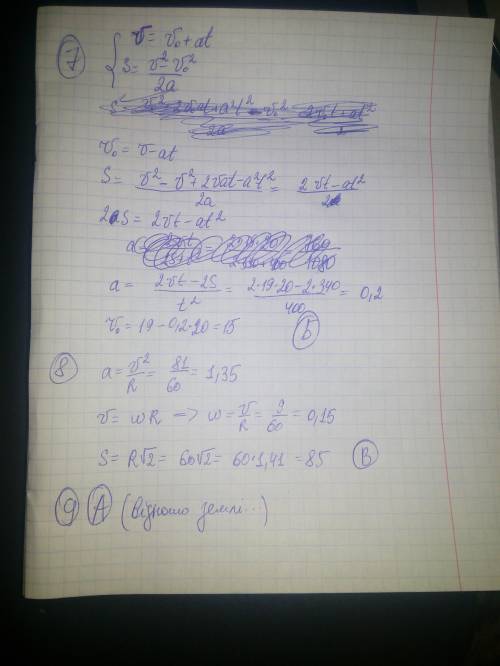 7 { v = v₀ + at
S = (v² - v₀²)/2a
v₀ = v - at
S = (v² - v² + 2vat - a²t²)/2a = (2vt - at²)/2
2S = 2vt - at²
a = (2vt - 2S)/t² = (2·19·20 - 2·340)/400 = 0,2
v₀ = 19 - 0,2·20 = 15 Б
8 a = v²/R = 81/60 = 1,35
v = wR => w = v/R = 9/60 = 0,15
S = R√2 = 60√2 = 60·1,41 = 85 В
9 А (відносно землі...)